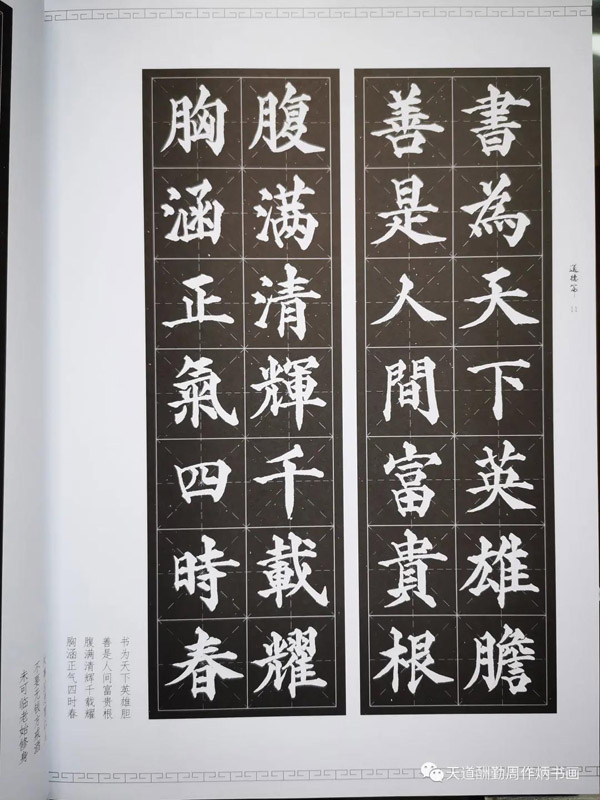 書為天下英雄膽
善是人間富貴根
腹满清輝千載耀
胸涵正氣四時春
道德篇
11
书为天下英雄胆
善是人间富贵根
腹满清辉千载耀
胸涵正气四时春
天道酬勤周作炳书画